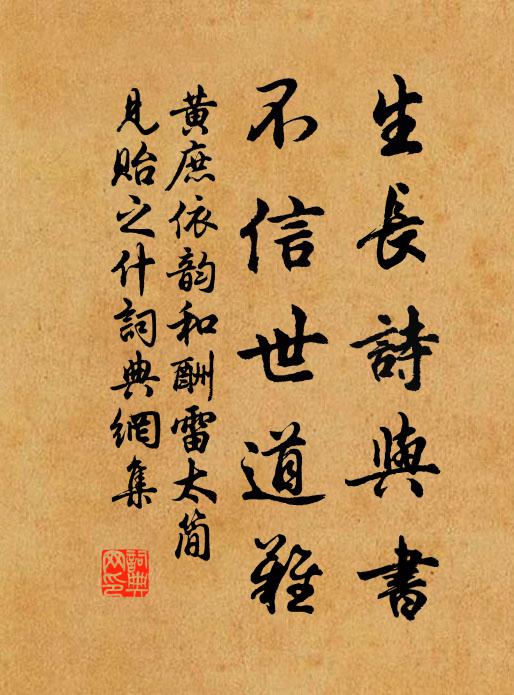 生長詩與書
不信世道難
黄庶依韵和酬雷太简
見贻之什詞典網集
詞典
网印